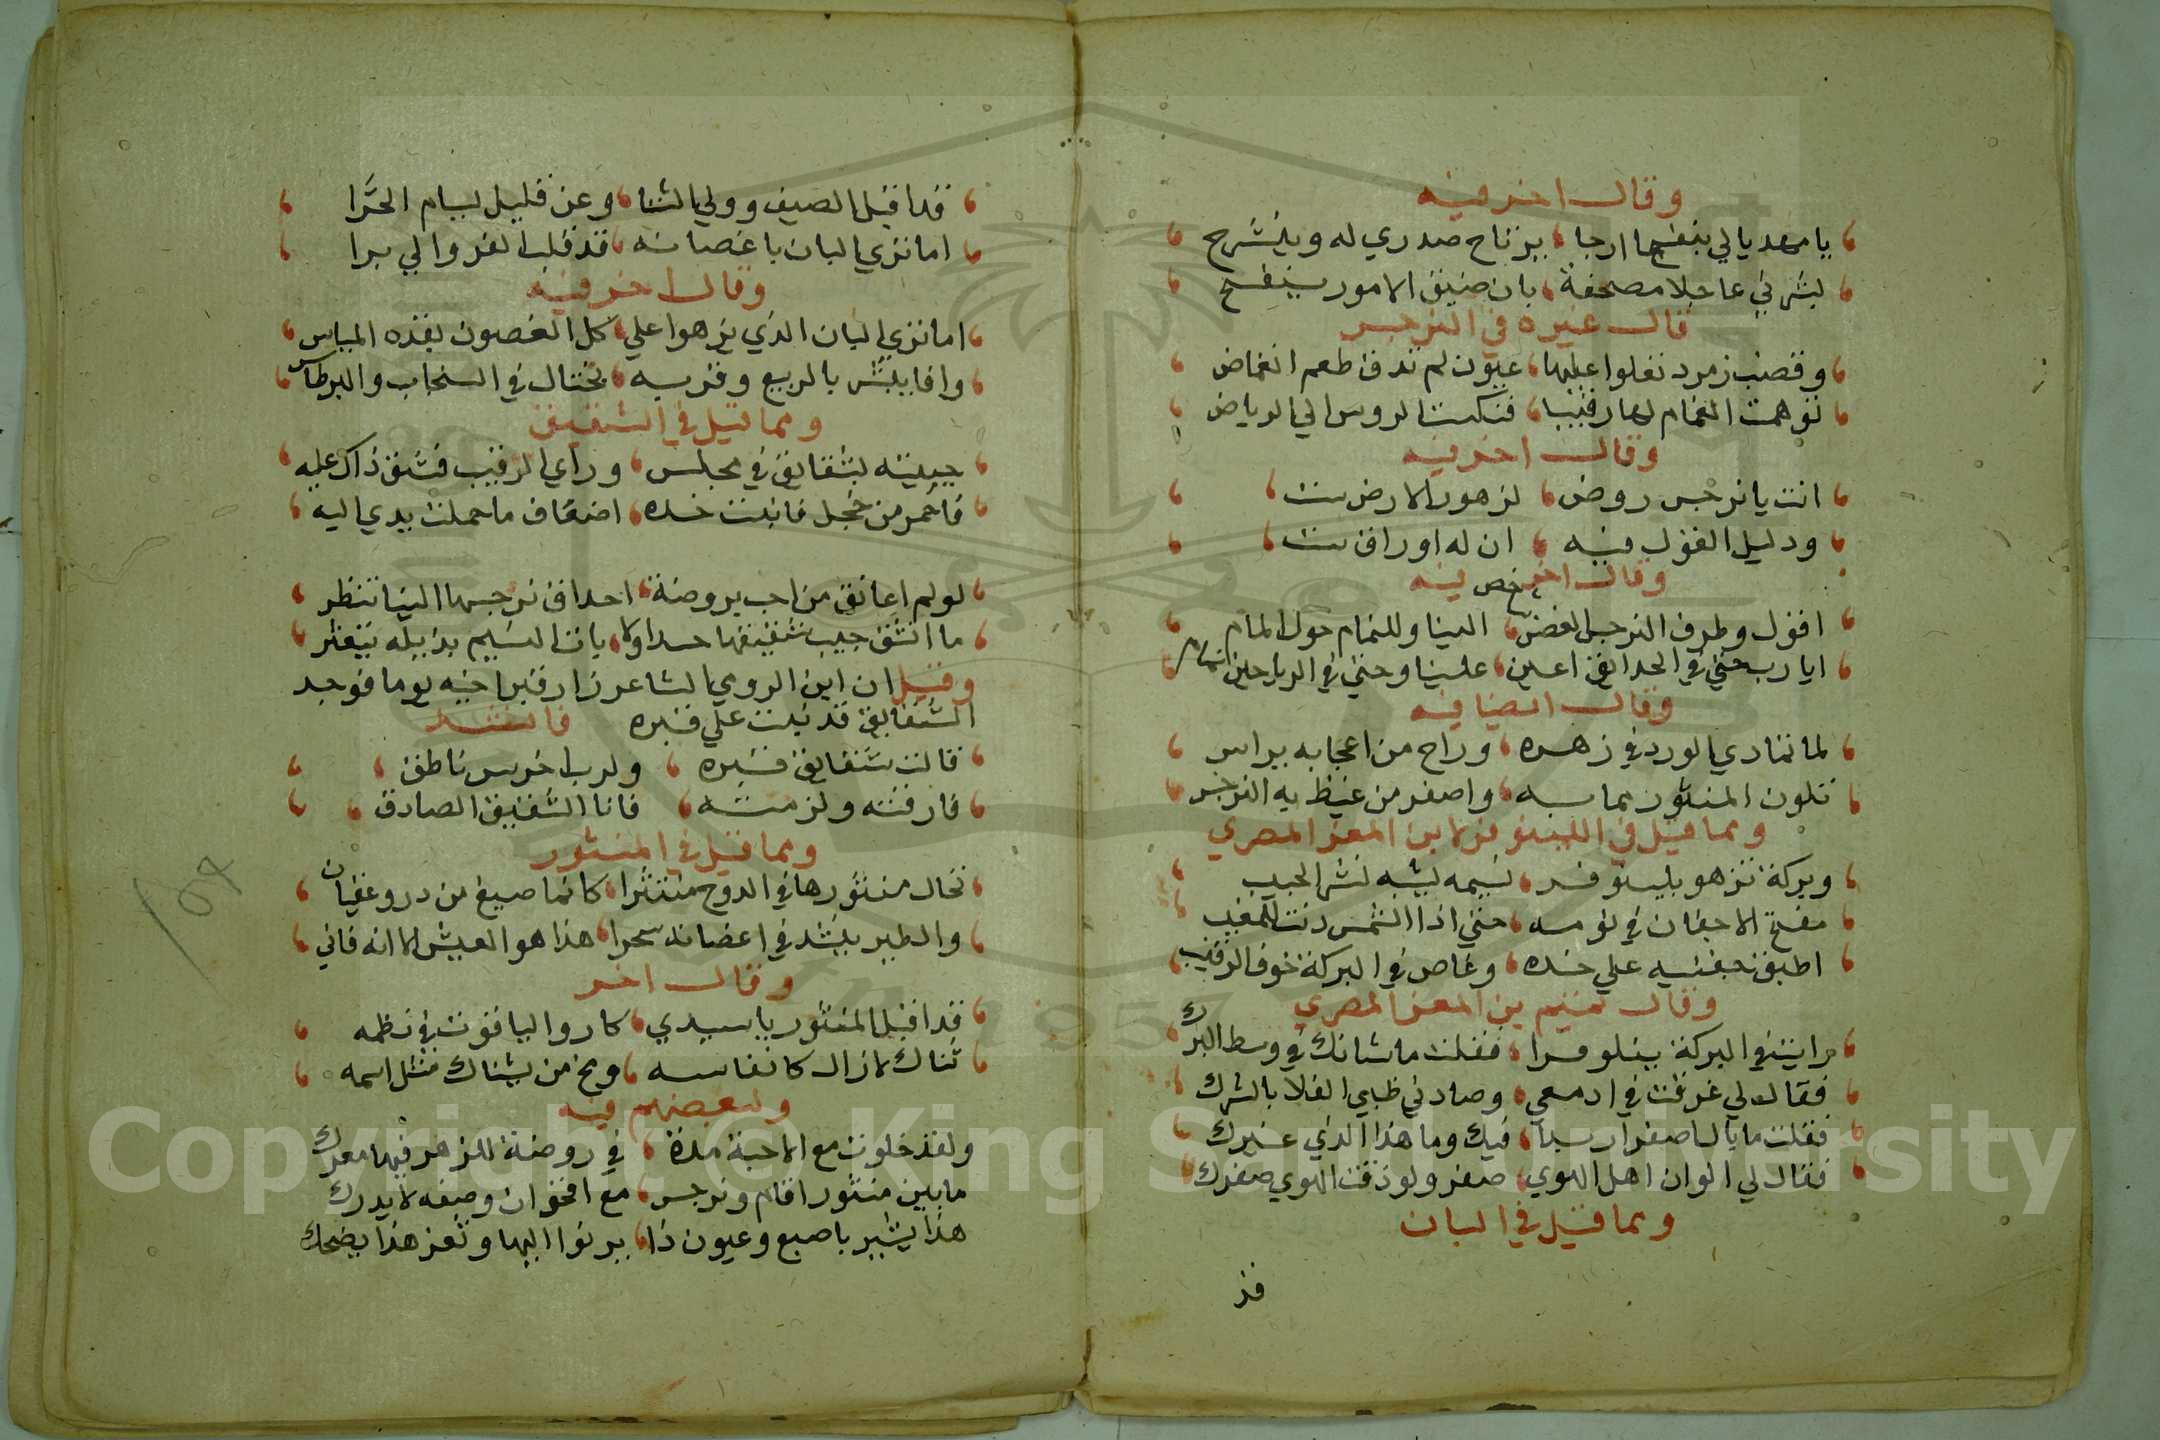 وقال اخر فيه
يا مهديا لي بنفسجا ارجا يرتاح صدري له وينشرح
بشرني عاجلا مصحفة بان ضيق الامور ينفسح
قال غيره في النرجس
وقضب زمرد تعلوا عليها عيون لم تذق طعم انغماض
توهمت الغمام لها رقيبا فنكست الروس الي الرياض
وقال اخر فيه
انت يا نرجس روض لزهور الارض ست
ودليل القول فيه ان له اوراق ست
وقال اخر فيه
اقول وطرف النرجس الغض الينا وللنمام حول المام
ايا رب حتي في الحدايق اعين علينا وحتي في الرياحين نمام
وقال ايضا فيه
لما تمادي الورد في زهره وراح من اعجابه يراس
تلون المنثور مما به واصفر من غيظ به النرجس
ومما قيل في اللينوفر لابن المعز المصري
وبركة تزهو بلينوفر نسيمه يشبه نشر الحبيب
مفتح الاجفان في نومه حتي اذا الشمس دنت للمغيب
اطبق جفنيه علي خده وغاص في البركة خوف الرقيب
وقال تميم بن المعز المصري
رايت في البركة نينلوفرا فقلت ما شانك في وسط البرك
فقال لي غرقت في ادمعي وصادني ظبي الفلا بالشرك
فقلت ما بال اصفرار بدا فيك وما هذا الذي غيرك
فقال لي الوان اهل الهوي صفر ولو ذقت الهوي صفرك
ومما قيل في البان
قد
قد اقبل الصيف وولي الشتا وعن قليل نسام الحرا
اما تري البان باغصانه قد قلب الفرو الي برا
وقال اخر فيه
اما تري البان الذي يزهوا علي كل الغصون بقده المياس
وافا يبشر بالربيع وقربه يختال في السنجاب والبرطاس
ومما قيل في الشقيق
حييته بشقايق في مجلس وراي الرقيب فشق ذاك عليه
فاحمر من خجل فانبتت خده اضعاف ما حملت يدي اليه
لو لم اعانق من احب بروضة احداق نرجسها الينا تنظر
ما انشق جيب شقيقها حسدا ولا بات النسيم بذيله يتعثر
وقيل ان ابن الرومي الشاعر زار قبر اخيه يوما فوجد
الشقايق قد نبتت علي قبره فانشد
قالت شقايق قبره ولرب اخرس ناطق
فارقته ولزمته فانا الشقيق الصادق
ومما قيل في المنثور
تخال منثورها في الدوح منتثرا كانما صيغ من در وعقيان
والطير ينشد في اغصانه سحرا هذا هو العيش الا انه فاني
وقال اخر
قد اقبل المنثور يا سيدي كادر والياقوت في نظمه
ثناك لا زال كانفاسه ومخ من يشناك مثل اسمه
ولبعضهم فيه
ولقد خلوت مع الاحبة مدة في روضة للزهر فيها معرك
ما بين منثور اقام ونرجس مع اقحوان وصفه لا يدرك
هذا يشير باصبع وعيون ذا يرنوا اليها وثغر هذا يضحك
107
Copyright © King Saud University
1957